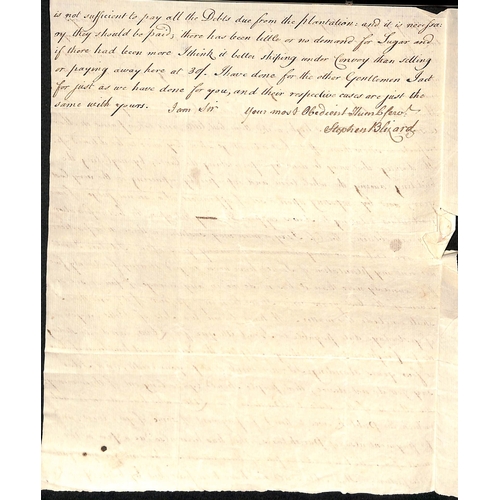 is not sufficient to pay all the Debts due from the Plantation: and it is necessa
ry they should be paid; there has been little or no demand for Sugar and
if there had been more I think it better shiping under Convoy than selling
or paying away here at 30/. I have done for the other Gentlemen I act
for just as we have done for you, and their respective cases are just the
same with yours. I am Sir Your most Obedient Humb Serv.t
Stephen Blizard